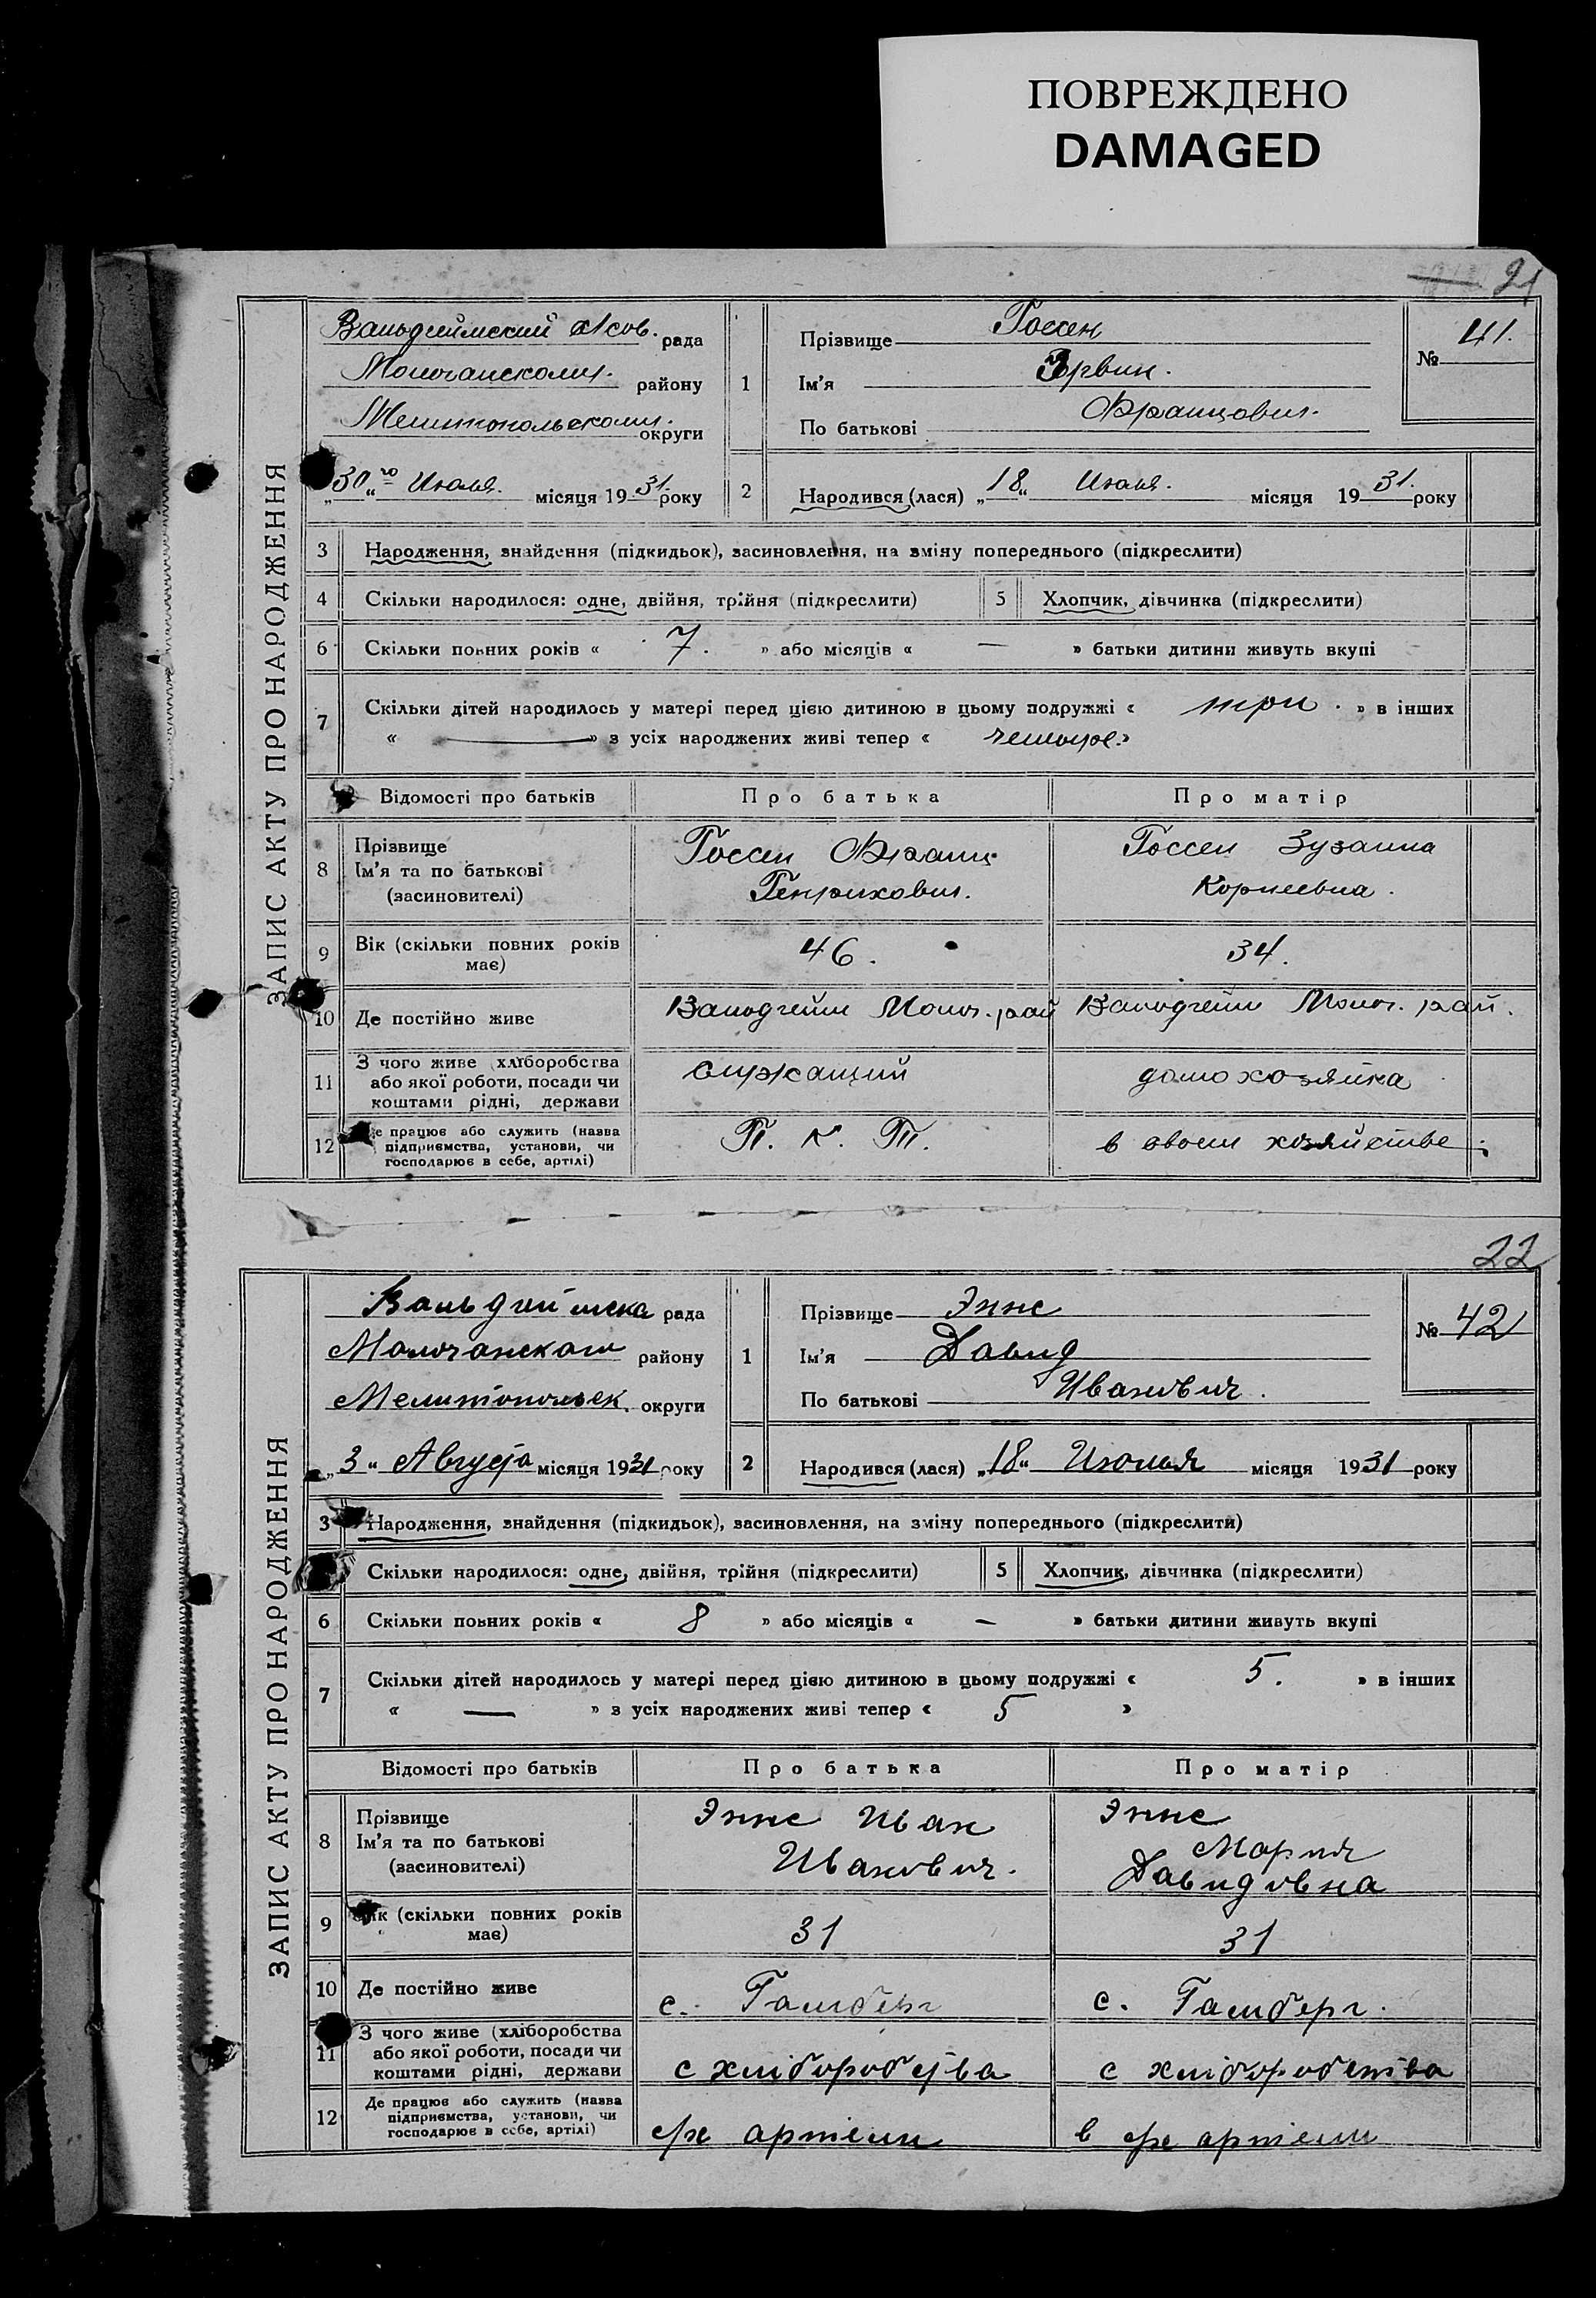 ПОВРЕЖДЕНО
DAMAGED
21
ЗАПИС АКТУ ПРО НАРОДЖЕННЯ
Вальдгеймский с/сов. рада
Молочанском. району
Мелитопольском. округи
„30го“ Июля. місяця 1931. року
1
Прізвище Госсен
Ім'я Эрвин.
По батькові Францович.
№ 41.
2
Народився (лася) „18“ Июля. місяця 1931. року
3 Народження, знайдення (підкидьок), засиновлення, на зміну попереднього (підкреслити)
4 Скільки народилося: одне, двійня, трійня (підкреслити) 5 Хлопчик, дівчинка (підкреслити)
6 Скільки повних років « 7. » або місяців « — » батьки дитини живуть вкупі
7 Скільки дітей народилось у матері перед цією дитиною в цьому подружжі « три. » в інших
« — » з усіх народжених живі тепер « четыре. »
Відомості про батьків Про батька Про матір
8 Прізвище
Ім'я та по батькові
(засиновителі)
Госсен Франц
Генрихович.
Госсен Зузанна
Корнеевна.
9 Вік (скільки повних років
має)
46. 34.
10 Де постійно живе Вальдгейм Молоч. рай Вальдгейм Молоч. рай.
11 З чого живе (хліборобства
або якої роботи, посади чи
коштами рідні, держави
служащий домохозяйка
12 Де працює або служить (назва
підприємства, установи, чи
господарює в себе, артілі)
П. К. Т. в своем хозяйстве.
22
ЗАПИС АКТУ ПРО НАРОДЖЕННЯ
Вальдгеймска рада
Молочанского району
Мелитопольск. округи
„3“ Августа місяця 1931 року
1
Прізвище Эннс
Ім'я Давид
По батькові Иванович.
№ 42
2
Народився (лася) „18“ Июля місяця 1931 року
3 Народження, знайдення (підкидьок), засиновлення, на зміну попереднього (підкреслити)
Скільки народилося: одне, двійня, трійня (підкреслити) 5 Хлопчик, дівчинка (підкреслити)
6 Скільки повних років « 8 » або місяців « — » батьки дитини живуть вкупі
7 Скільки дітей народилось у матері перед цією дитиною в цьому подружжі « 5. » в інших
« — » з усіх народжених живі тепер « 5 »
Відомості про батьків Про батька Про матір
8 Прізвище
Ім'я та по батькові
(засиновителі)
Эннс Иван
Иванович.
Эннс
Мария
Давидовна
9 Вік (скільки повних років
має)
31 31
10 Де постійно живе с. Гамберг с. Гамберг.
11 З чого живе (хліборобства
або якої роботи, посади чи
коштами рідні, держави
с хліборобства с хліборобства
12 Де працює або служить (назва
підприємства, установи, чи
господарює в себе, артілі)
с/х артели в с/х артели